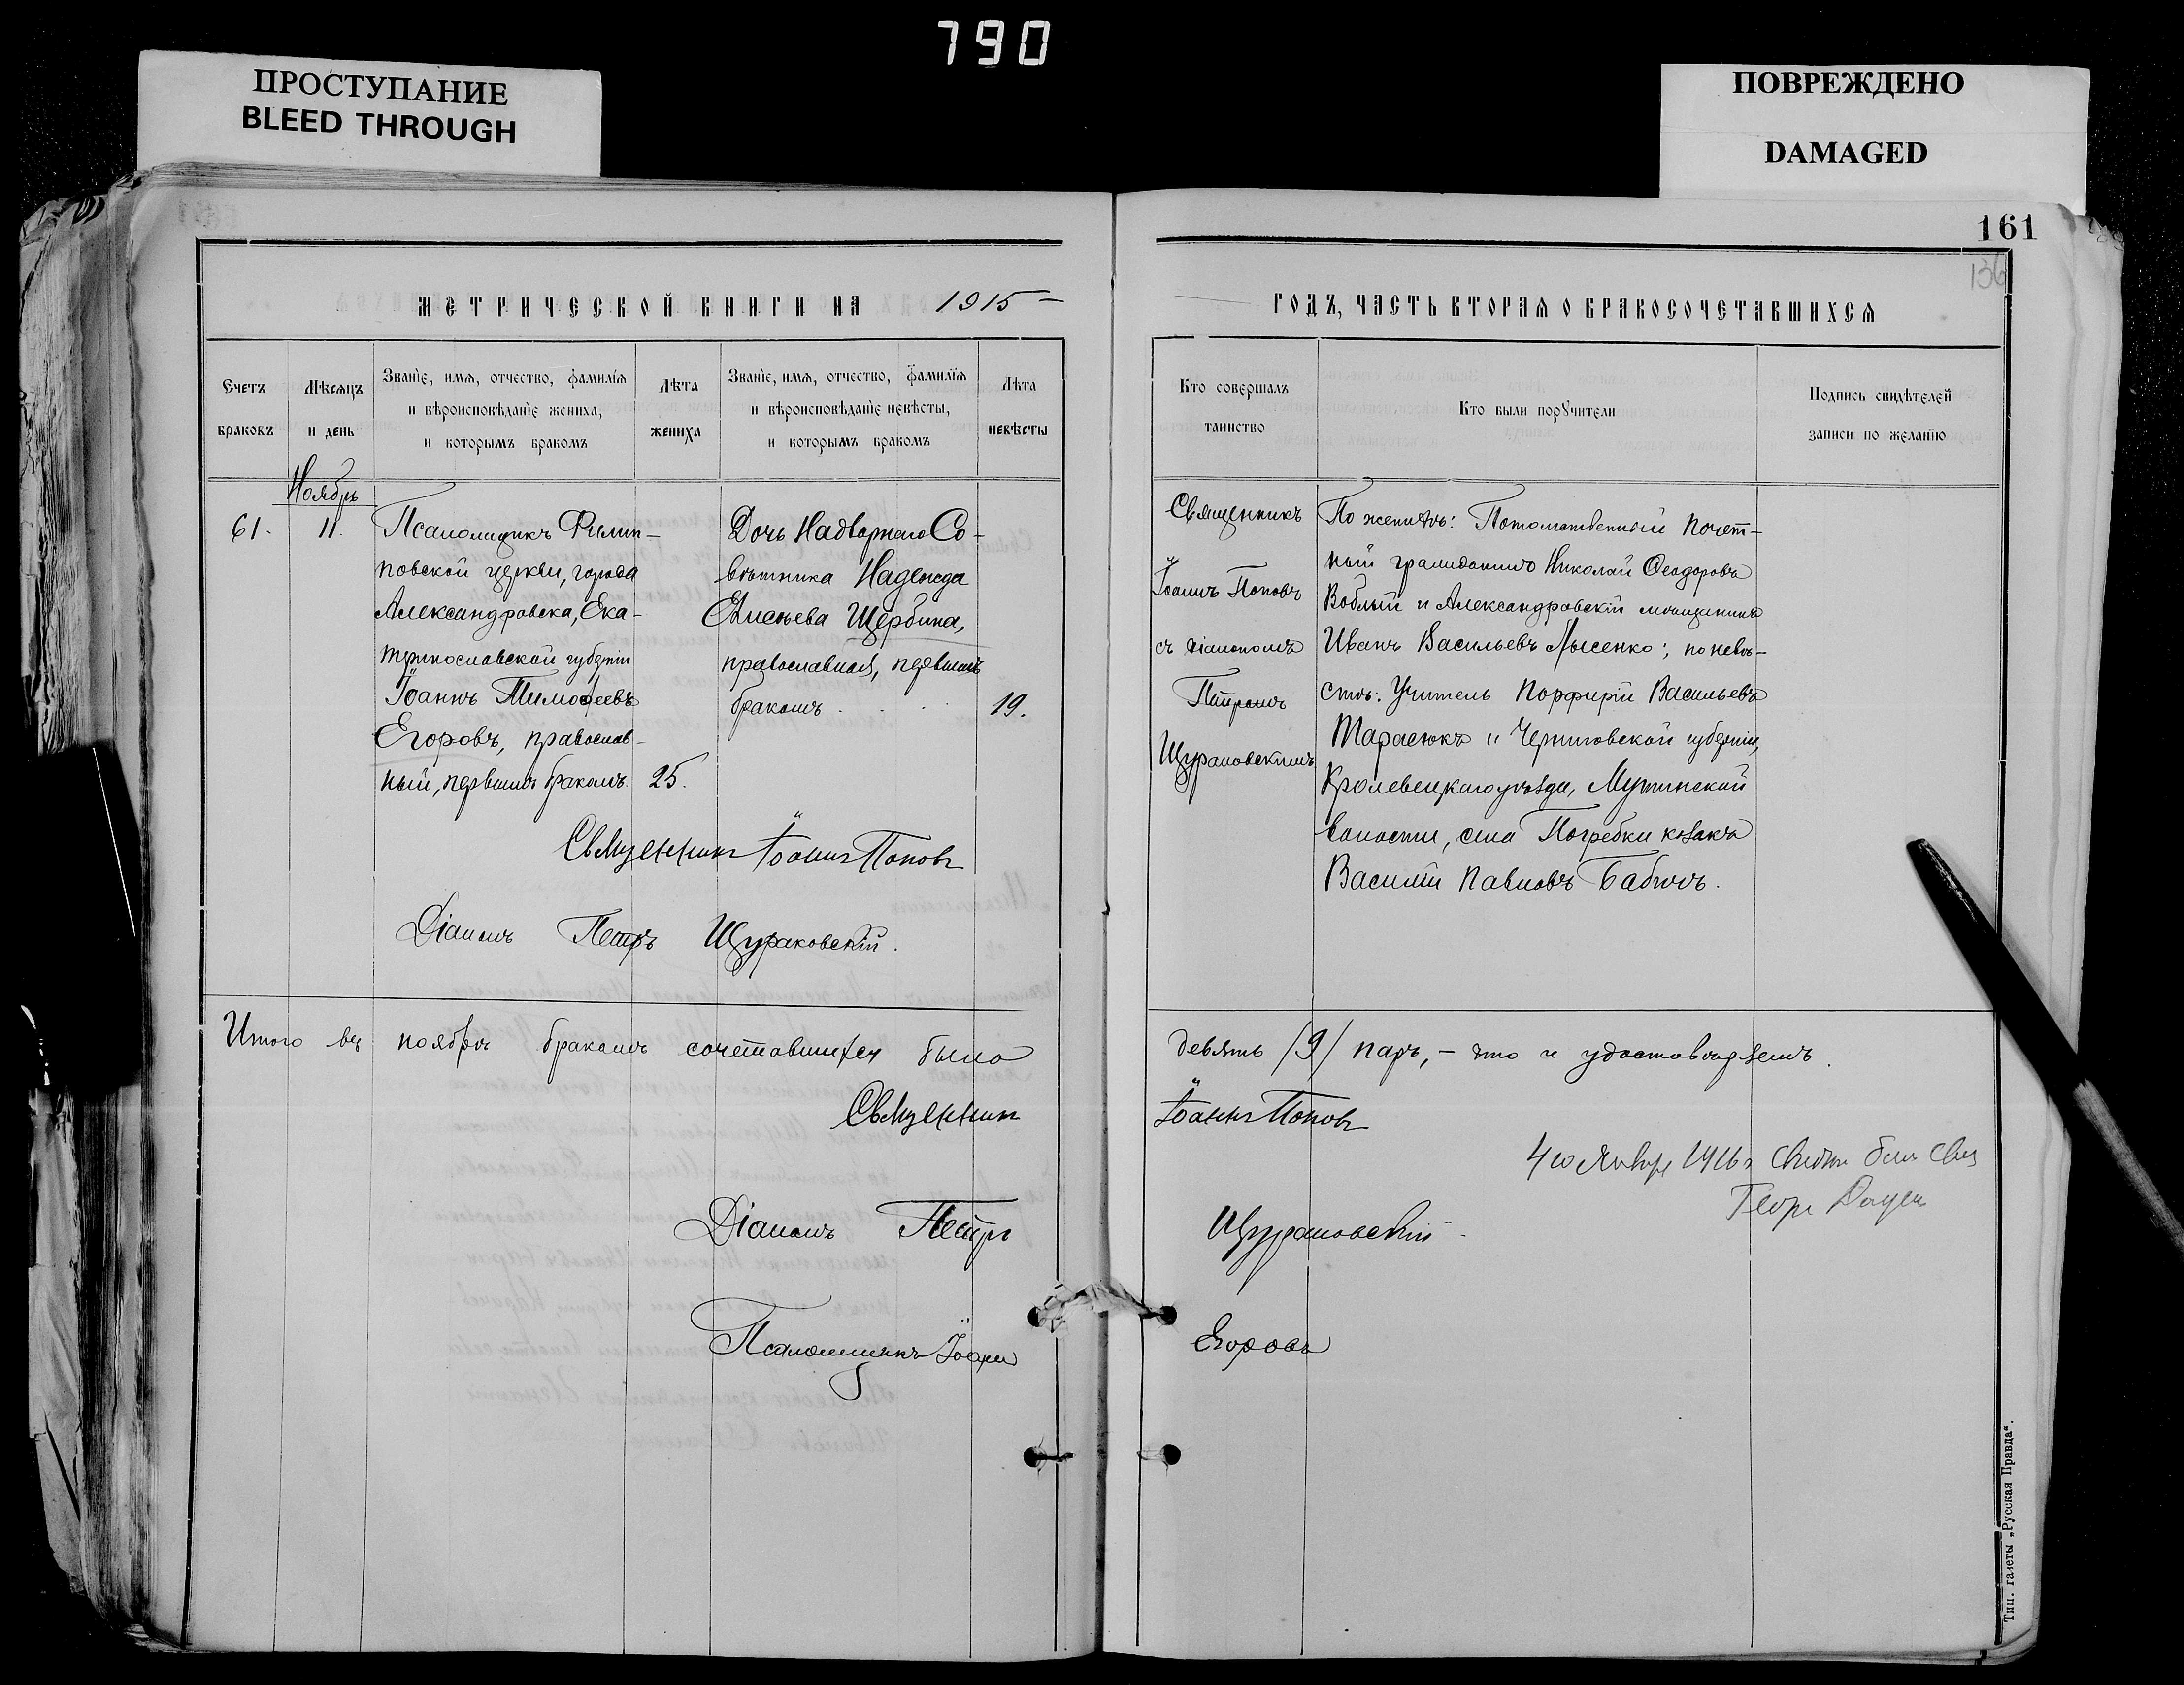 790
ПРОСТУПАНИЕ
BLEED THROUGH
ПОВРЕЖДЕНО
DAMAGED
161
136
МЕТРИЧЕСКОЙ КНИГИ НА 1915
Счетъ
браковъ
Мѣсяцъ
и день
Званіе, имя, отчество, фамилія
и вѣроисповѣданіе жениха,
и которымъ бракомъ
Лѣта
жениха
Званіе, имя, отчество, фамилія
и вѣроисповѣданіе невѣсты,
и которымъ бракомъ
Лѣта
невѣсты
Ноябрь
61.
11.
Псаломщикъ Филип-
повской церкви, города
Александровска, Ека-
теринославской губерніи
Іоаннъ Тимофеевъ
Егоровъ, православ-
ный, первымъ бракомъ.
25.
Дочь Надворнаго Со-
вѣтника Надежда
Елисѣева Щербина,
православная, первымъ
бракомъ
19.
Священникъ Іоаннъ Поповъ
Діаконъ Петръ Щураковскій.
Итого въ ноябрѣ бракомъ сочетавшихся было
Священник
Діаконъ Петръ
Псаломщикъ Іоаннъ
ГОДЪ, ЧАСТЬ ВТОРАЯ О БРАКОСОЧЕТАВШИХСЯ
Кто совершалъ
таинство
Кто были поручители
Подпись свидѣтелей
записи по желанію
Священникъ
Іоаннъ Поповъ
съ діакономъ
Петромъ
Щураковскимъ
По женихѣ: Потомственный почет-
ный гражданинъ Николай Ѳеодоровъ
Воблый и Александровскій мѣщанинъ
Иванъ Васильевъ Лысенко; по невѣ-
стѣ: Учитель Порфирій Васильевъ
Тарасюкъ и Черниговской губерніи,
Кролевецкаго уѣзда, Мутинской
волости, села Погребки козакъ
Василій Павловъ Бабичъ.
девять /9/ паръ, – что и удостовѣряемъ.
Іоаннъ Поповъ
4го Январ 1916 г
Щураковскій
Егоровъ
Тип. газеты „Русская Правда“.